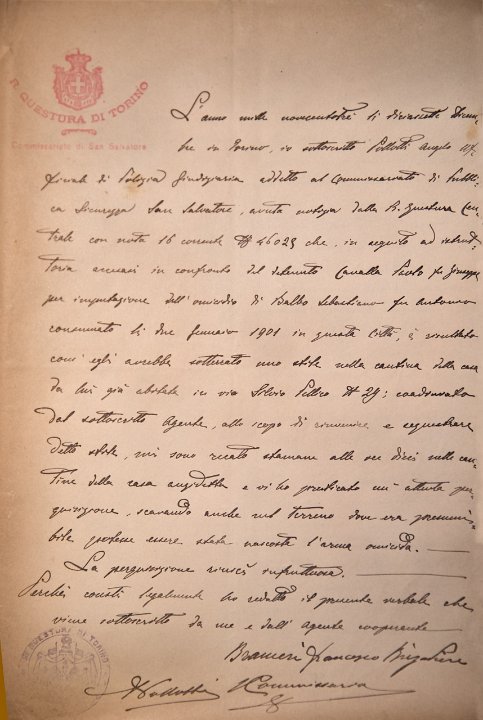 R. QUESTURA DI TORINO
Commissariato di San Salvatore
L'anno mille novecentotré li diciasette Dicem-
bre in Torino, io sottoscritto Angelo Uf-
ficiale di Polizia Giudiziaria addetto al Commissariato di Pubbli-
ca Sicurezza San Salvatore, avuta notizia dalla R. Questura Cen-
trale con nota 16 corrente N 46025 che, in seguito ad istrut-
toria in confronto del detenuto Cavalla Paolo fu Giuseppe
per imputazione dell'omicidio di Balbo Sebastiano fu Antonio
consumato li due Gennaio 1901 in questa Città, è risultato
com'egli avrebbe sotterrato uno stile nella cantina della casa
da lui già abitata in via Silvio Pellico N 29; coadiuvato
dal sottoscritto Agente, allo scopo di rinvenire e sequestrare
detto stile, mi sono recato stamane alle ore dieci nelle can-
tine della casa anzidetta e vi ho praticato un'attenta per-
quisizione, scavando anche nel terreno dove era presumi-
bile potesse essere stata nascosta l'arma omicida.
La perquisizione riuscì infruttuosa.
Perché consti legalmente ho redatto il presente verbale che
viene sottoscritto da me e dall'Agente cooperante
Francesco Brigadiere
Commissario
R. QUESTURA DI TORINO